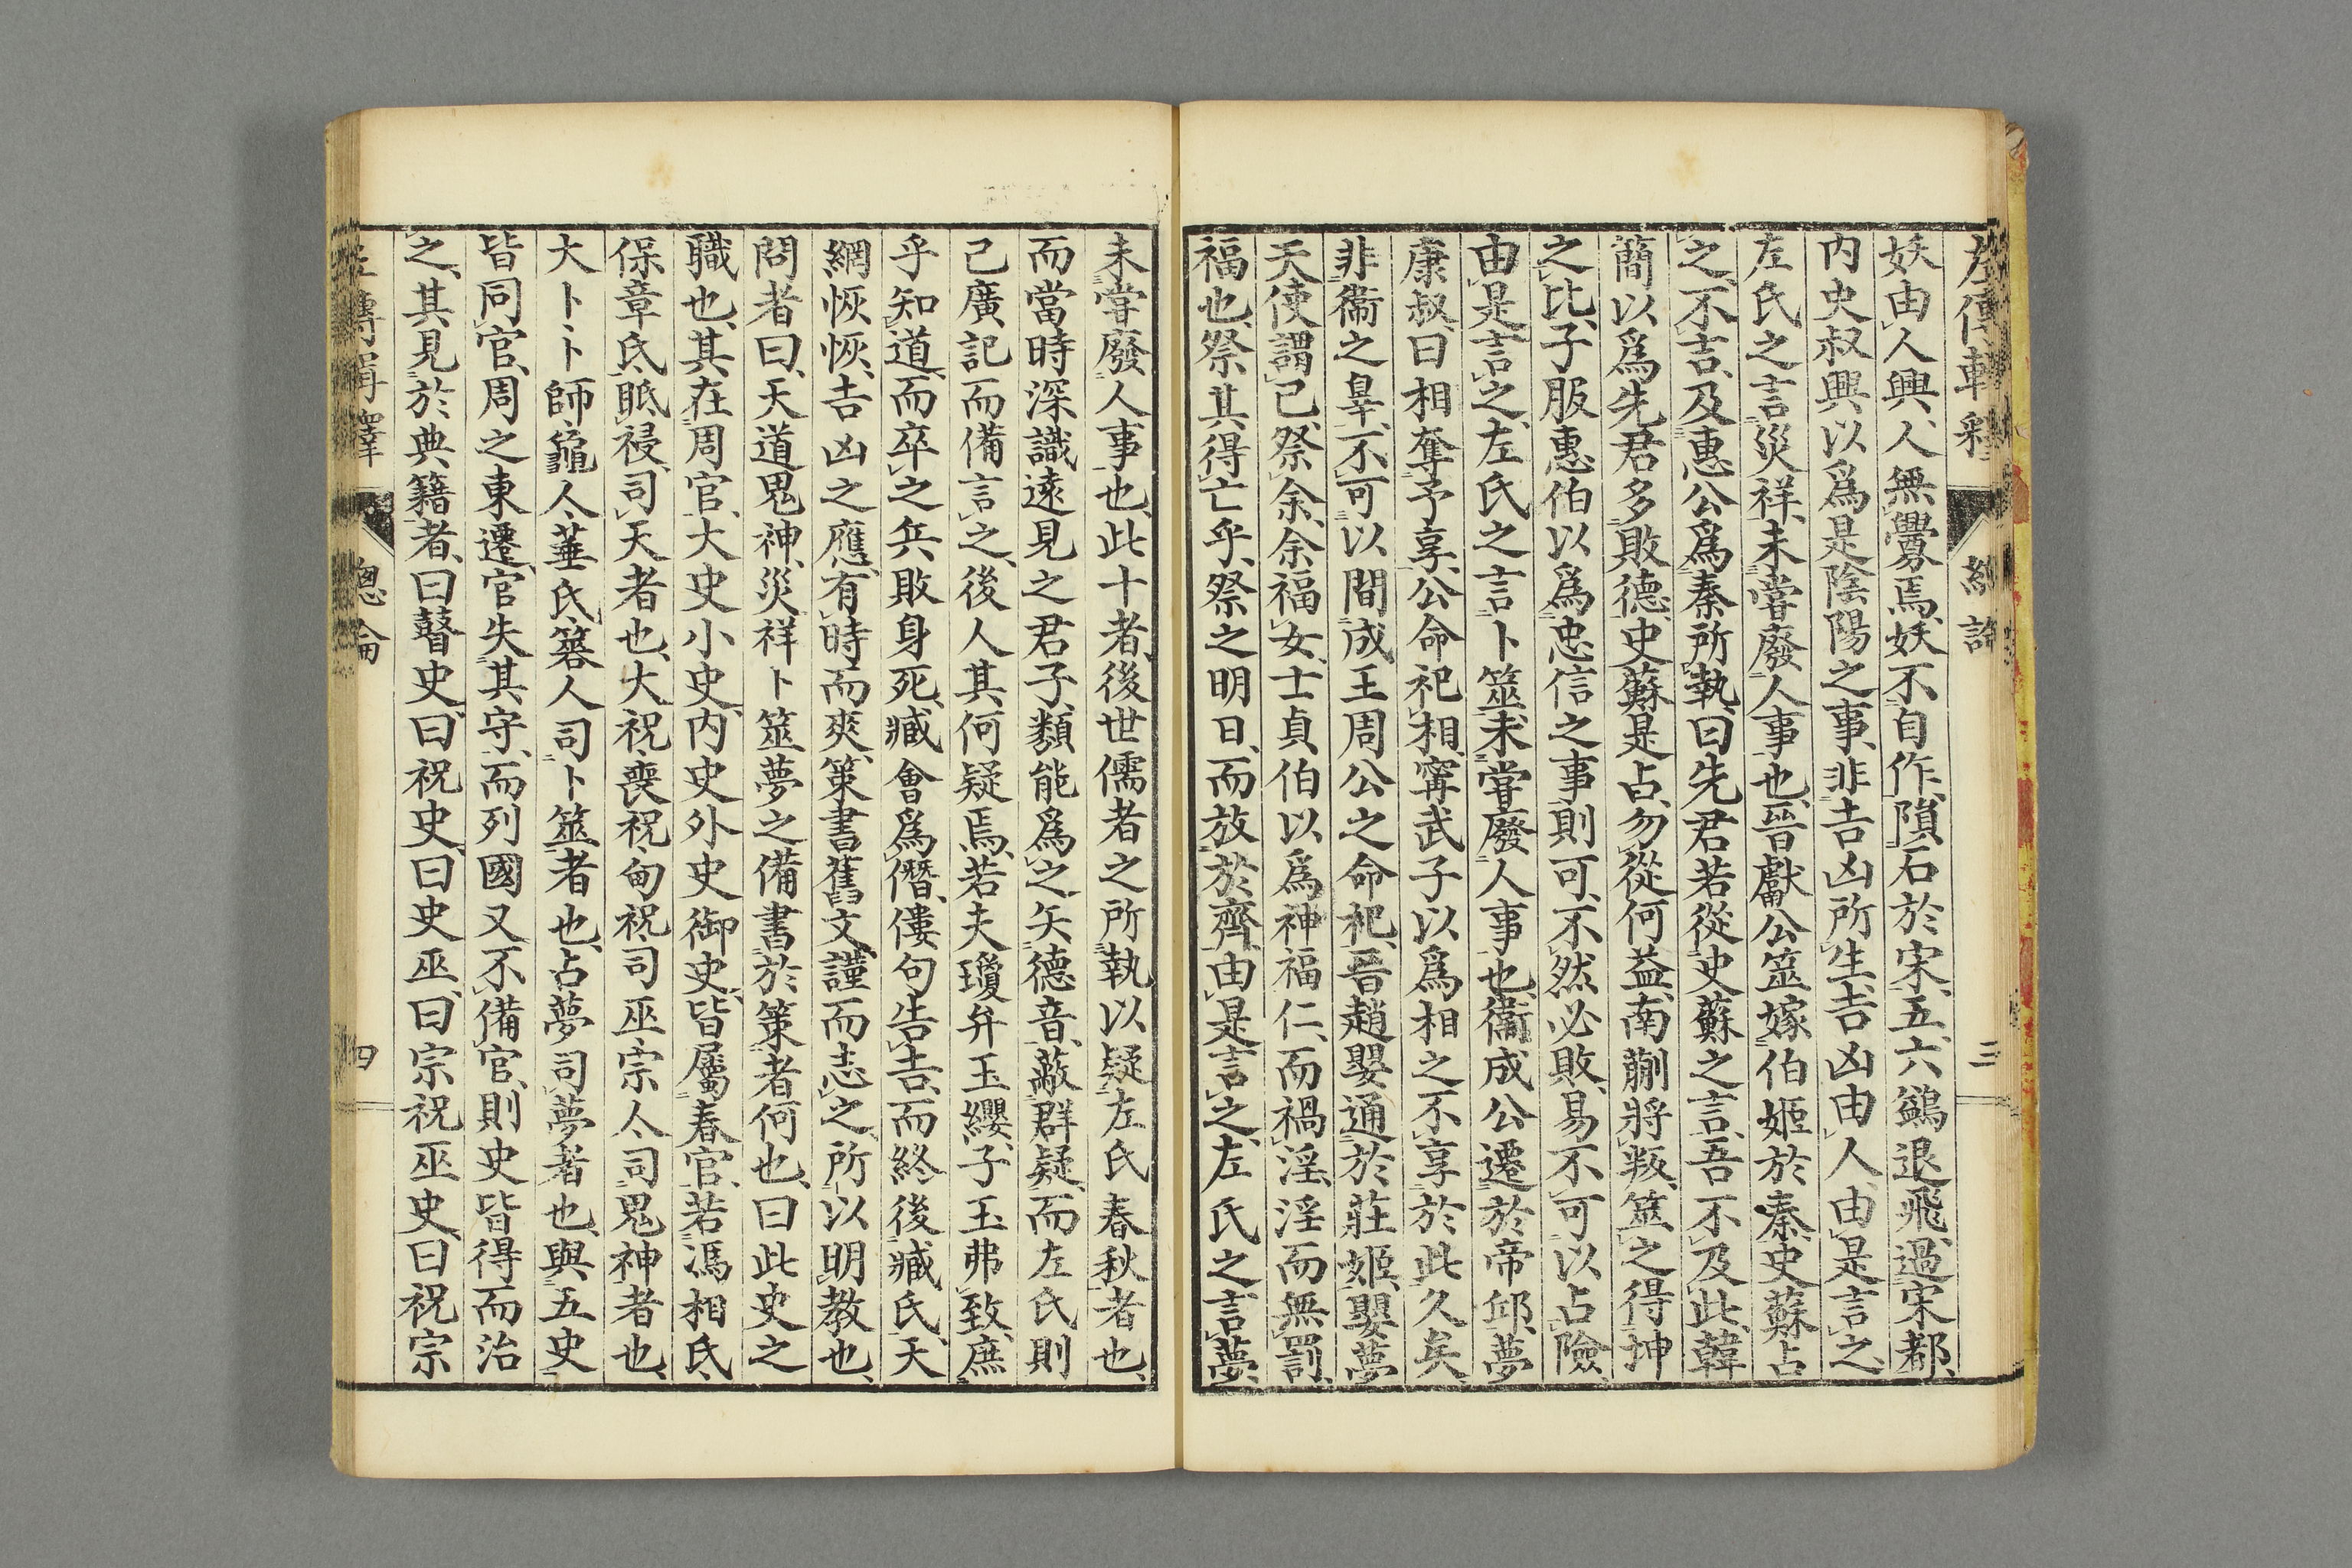 左傳輯釋 總論 三
妖由人興、人無釁焉、妖不自作、隕石於宋、五、六鷁退飛、過宋都、
内史叔興以爲是陰陽之事、非吉凶所生、吉凶由人、由是言之、
左氏之言災祥、未嘗廢人事也、晉獻公筮嫁伯姬於秦、史蘇占
之、不吉、及惠公爲秦所執、曰先君若從史蘇之言、吾不及此、韓
簡以爲先君多敗德、史蘇是占、勿從何益、南蒯將叛、筮之得坤
之比、子服惠伯以爲忠信之事則可、不然必敗、易不可以占險、
由是言之、左氏之言卜筮、未嘗廢人事也、衞成公遷於帝邱、夢
康叔、曰相奪予享、公命祀相、寗武子以爲相之不享於此久矣、
非衞之辠、不可以間成王周公之命祀、晉趙嬰通於莊姬、嬰夢
天使謂己、祭余、余福女、士貞伯以爲神福仁、而禍淫、淫而無罰、
福也、祭其得亡乎、祭之明日、而放於齊、由是言之、左氏之言夢、
未嘗廢人事也、此十者、後世儒者之所執以疑左氏春秋者也、
而當時深識遠見之君子、類能爲之、矢德音、蔽群疑、而左氏則
己廣記而備言之、後人其何疑焉、若夫瓊弁玉纓、子玉弗致、庶
乎知道、而卒之兵敗身死、臧會爲僭、僂句告吉、而終後臧氏、天
網恢恢、吉凶之應、有時而爽、策書舊文、謹而志之、所以明教也、
問者曰、天道鬼神、災祥卜筮夢之備書於策者何也、曰此史之
職也、其在周官、大史小史、内史外史御史、皆屬春官、若馮相氏、
保章氏、眡祲、司天者也、大祝、喪祝、甸祝、司巫、宗人、司鬼神者也、
大卜、卜師、龜人、菙氏、簭人、司卜筮者也、占夢司夢者也、與五史
皆同官、周之東遷、官失其守、而列國又不備官、則史皆得而治
之、其見於典籍者、曰瞽史、曰祝史、曰史巫、曰宗祝巫史、曰祝宗
左傳輯釋 總論 四